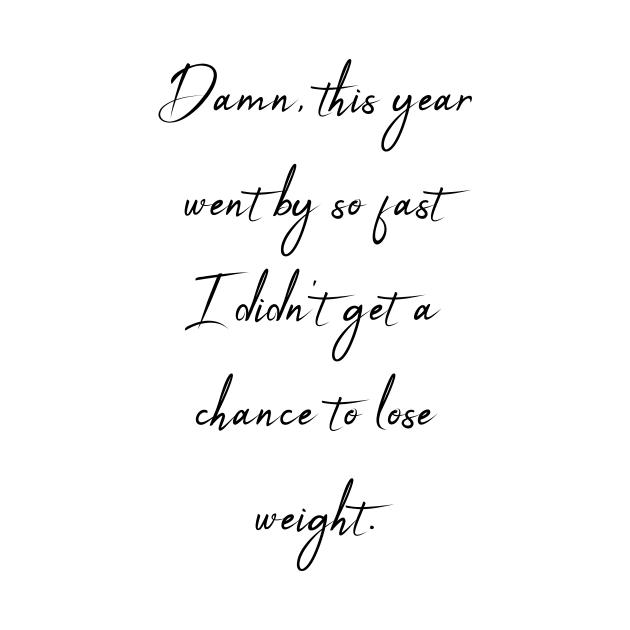 Damn, this year
went by so fast
I didn't get a
chance to lose
weight.